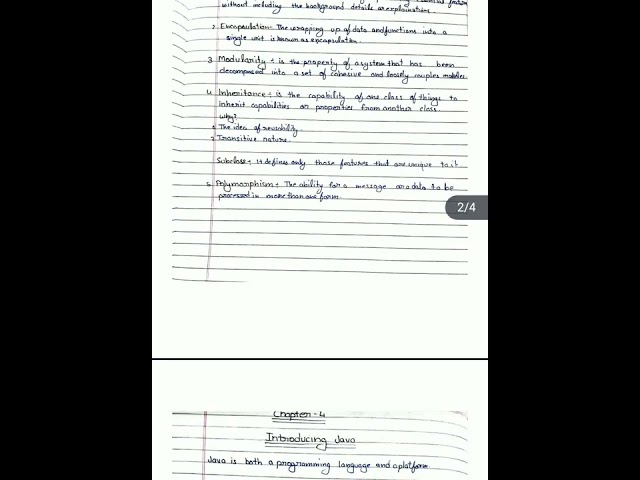 without including the background details or explanations.
2. Encapsulation:- The wrapping up of data and functions into a
single unit is known as encapsulation.
3 Modularity :- is the property of a system that has been
decomposed into a set of cohesive and loosely couples modules
4 Inheritance :- is the capability of one class of things to
inherit capabilities or properties from another class.
why?
1 The idea of reusability.
2 Transitive nature.
Subclass :- it defines only those features that are unique to it
5 Polymorphism :- The ability for a message or a data to be
processed in more than one form.
2/4
Chapter-4
Introducing Java
Java is both a programming language and a platform